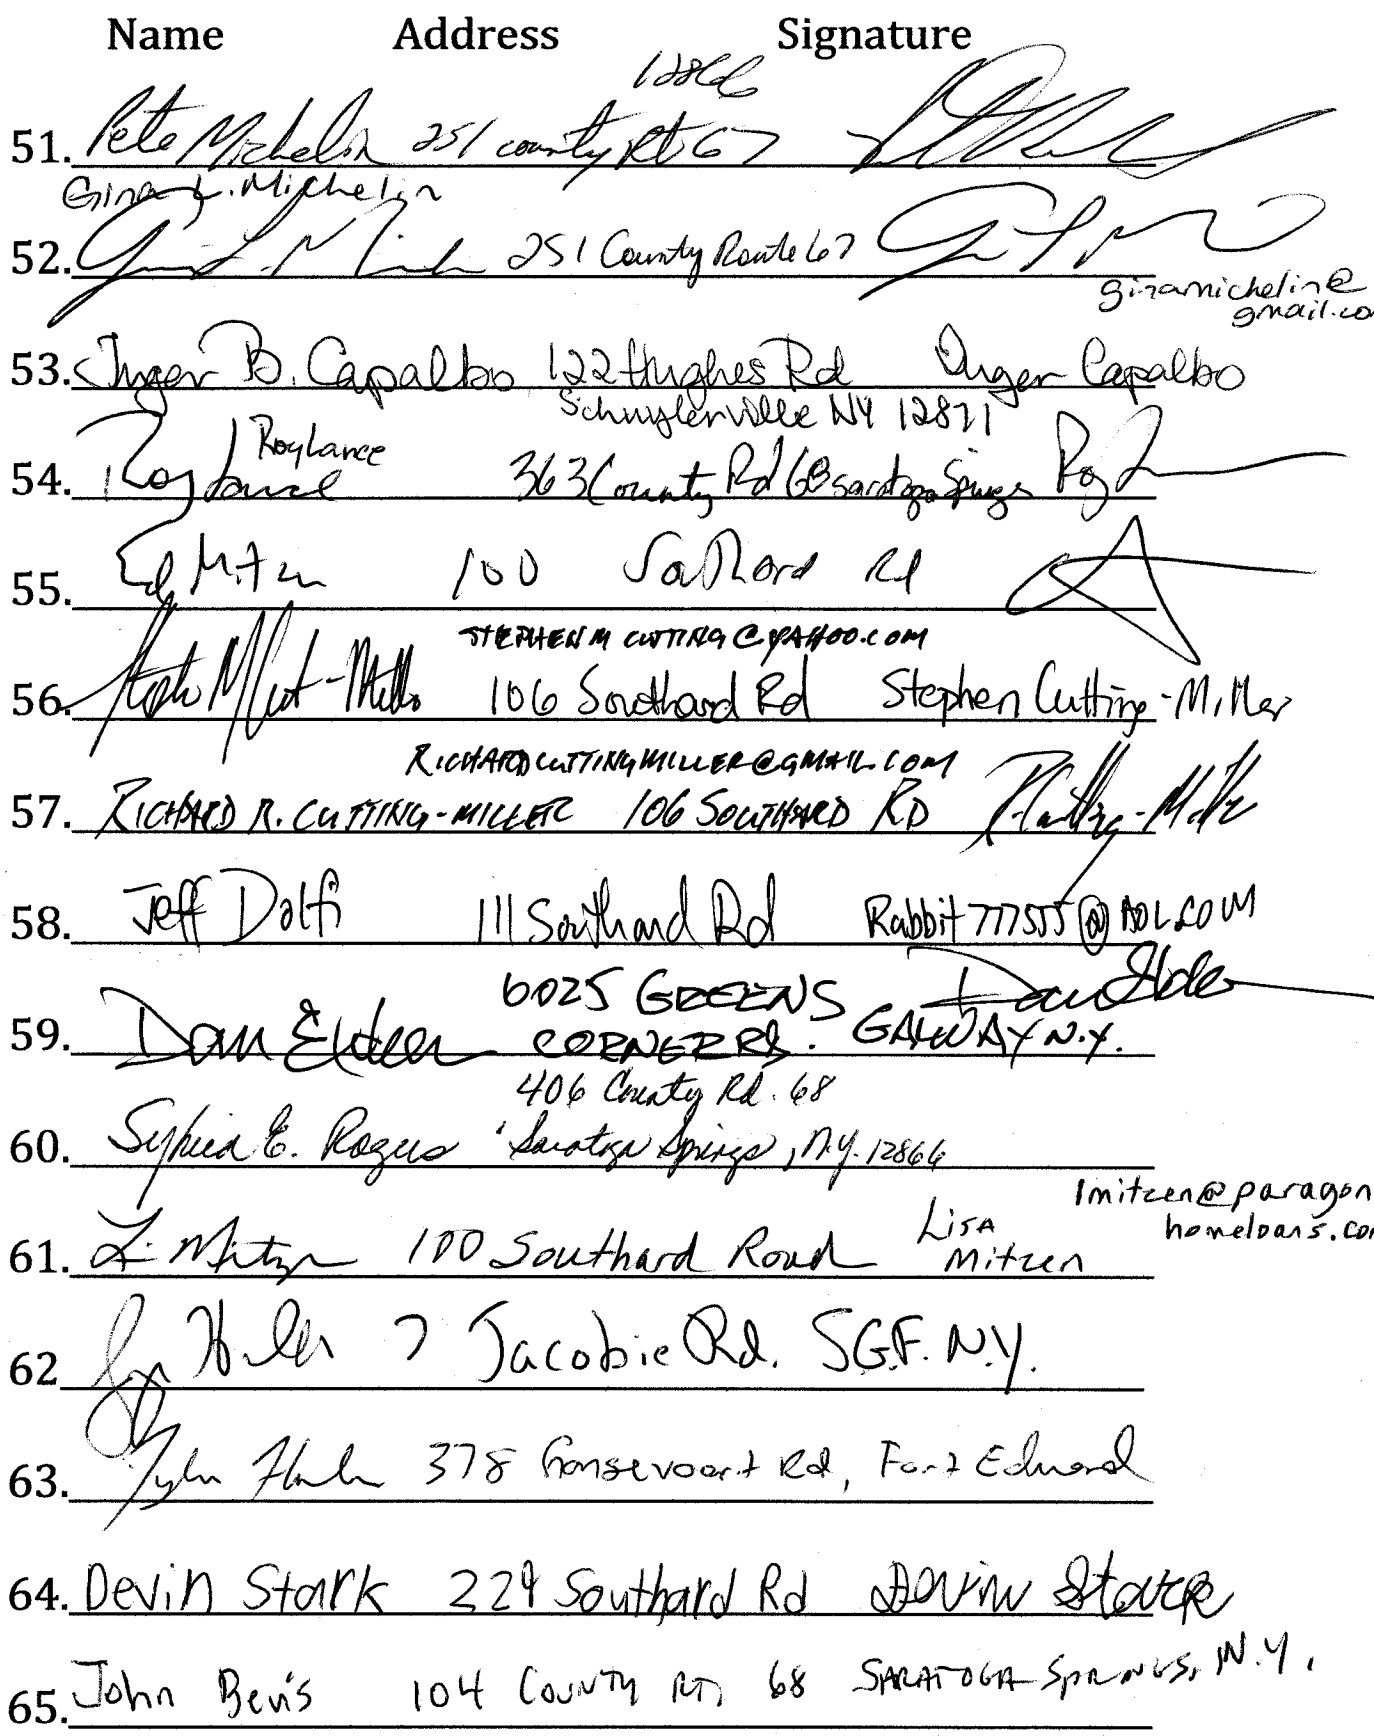 Name Address Signature
12866
51. Pete Michelin 251 county Rt 67
Gina L. Michelin
52. 251 County Route 67
ginamichelin@
gmail.co
53. Inger B. Capalbo 122 Hughes Rd Inger Capalbo
Schuylerville NY 12871
Roy Lance
54. Roy Lance 363 County Rd 68 Saratoga Springs Roy
55. Ed Mitzen 100 Southard Rd
STEPHENMCUTTING@YAHOO.COM
56. 106 Southard Rd Stephen Cutting-Miller
RICHARDCUTTINGMILLER@GMAIL.COM
57. RICHARD R. CUTTING-MILLER 106 SOUTHARD RD R Cutting-Miller
58. Jeff Dolfi 111 Southard Rd Rabbit777555@AOL.COM
6025 GREENS
59. Dan Elder CORNER RD. GALWAY N.Y.
406 County Rd. 68
60. Sylvia E. Rogers Saratoga Springs, N.Y. 12866
lmitzen@paragon
homeloans.co
61. L. Mitzen 100 Southard Road Lisa Mitzen
62 7 Jacobie Rd. S.G.F. N.Y.
63. Tyler 378 Gansevoort Rd, Fort Edward
64. Devin Stark 229 Southard Rd Devin Stark
65. John Bevis 104 COUNTY RT 68 SARATOGA SPRINGS, N.Y.